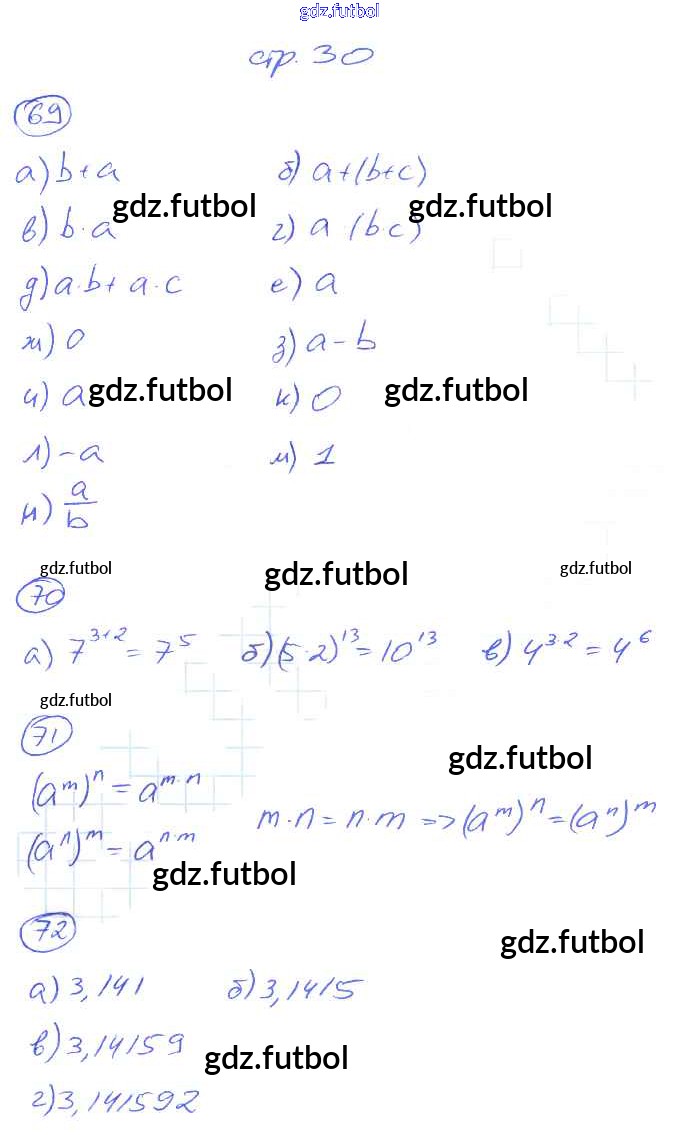 gdz.futbol
стр. 30
69
а) b+a б) a+(b+c)
gdz.futbol gdz.futbol
в) b·a г) a (b·c)
д) a·b+a·c е) a
ж) 0 з) a-b
и) a к) 0
gdz.futbol gdz.futbol
л) -a м) 1
н) a/b
gdz.futbol gdz.futbol gdz.futbol
70
а) 7^{3+2} = 7^5 б) (5·2)^{13} = 10^{13} в) 4^{3·2} = 4^6
gdz.futbol
71
gdz.futbol
(a^m)^n = a^{m·n}
m·n = n·m => (a^m)^n = (a^n)^m
(a^n)^m = a^{n·m}
gdz.futbol
72
gdz.futbol
а) 3,141 б) 3,1415
в) 3,14159
gdz.futbol
г) 3,141592